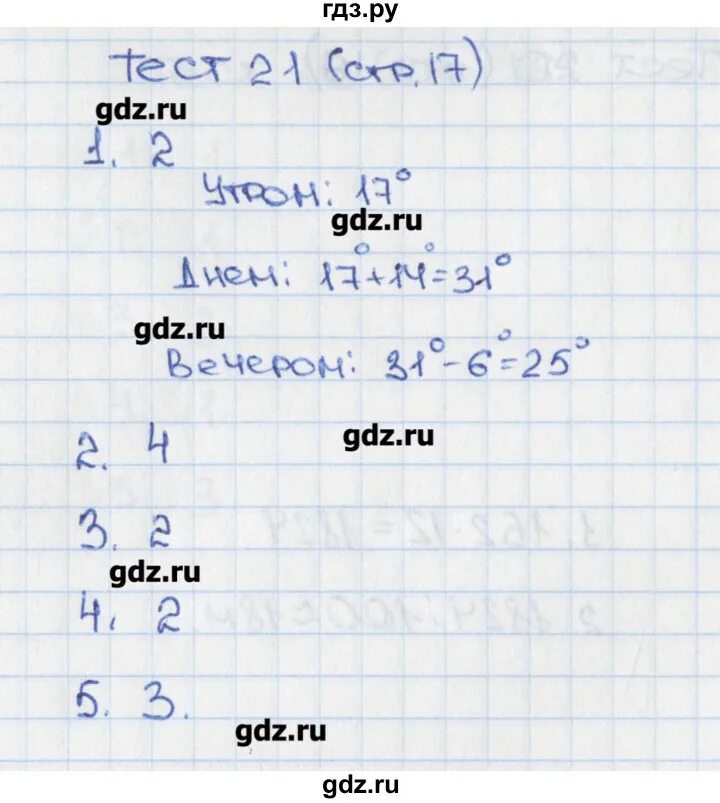 гдз.ру
Тест 21 (стр. 17)
gdz.ru
1. 2
Утром: 17°
gdz.ru
Днем: 17°+14°=31°
gdz.ru
Вечером: 31°-6°=25°
gdz.ru
2. 4
3. 2
gdz.ru
4. 2
5. 3.
gdz.ru
gdz.ru